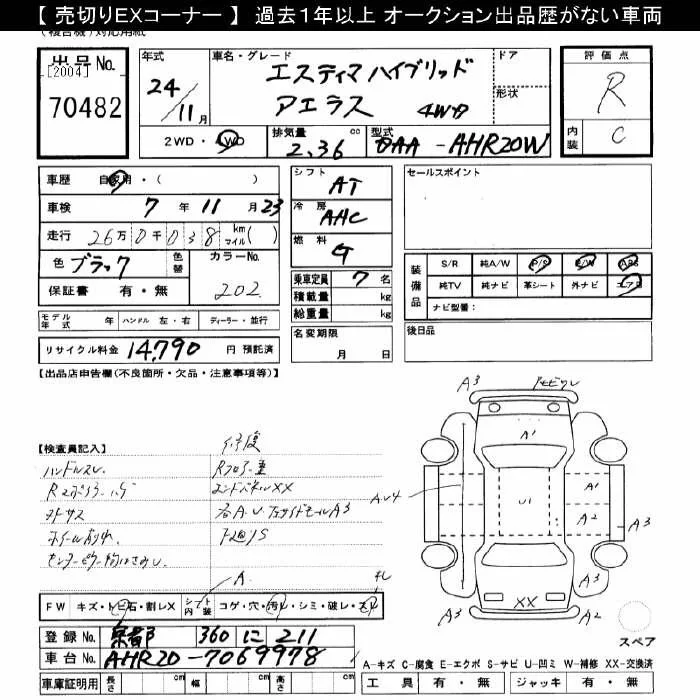 【 売切りEXコーナー 】 過去1年以上 オークション出品歴がない車両
(複合機)対応用紙
出品No.
[2004]
70482
年式
24/11月
車名・グレード
エスティマハイブリッド
アエラス 4WD
ドア
形状
評価点
R
内装
C
2WD・4WD
排気量
2.36 cc
型式
DAA-AHR20W
車歴 自家用・( )
車検 7年11月23
走行 26万0千038 km マイル( )
色 ブラック
色替
カラーNo.
202
保証書 有・無
シフト
AT
冷房
AAC
燃料
G
乗車定員 7 名
積載量 kg
総重量 kg
セールスポイント
装備品
S/R 純A/W P/S P/W ABS
純TV 純ナビ 革シート 外ナビ エアB
ナビ型番:
モデル年式 年 ハンドル 左・右 ディーラー・並行
名変期限
月 日
後日品
リサイクル料金 14,790 円 預託済
【出品店申告欄(不良箇所・欠品・注意事項等)】
【検査員記入】
修復
ハンドルスレ
Rフロアー重
エンドパネルXX
下廻りS
A3
A1
A1
U1
A2
A3
AU4
XX
A3
A2
スペア
A
FW キズ・トビ石・割レX
シート内装 コゲ・穴・汚レ・シミ・破レ・スレ
登録No. 京都 360 に 211
車台No. AHR20-7069978
車庫証明用 長さ cm 幅 cm 高さ cm
A-キズ C-腐食 E-エクボ S-サビ U-凹ミ W-補修 XX-交換済
工具 有・無 ジャッキ 有・無